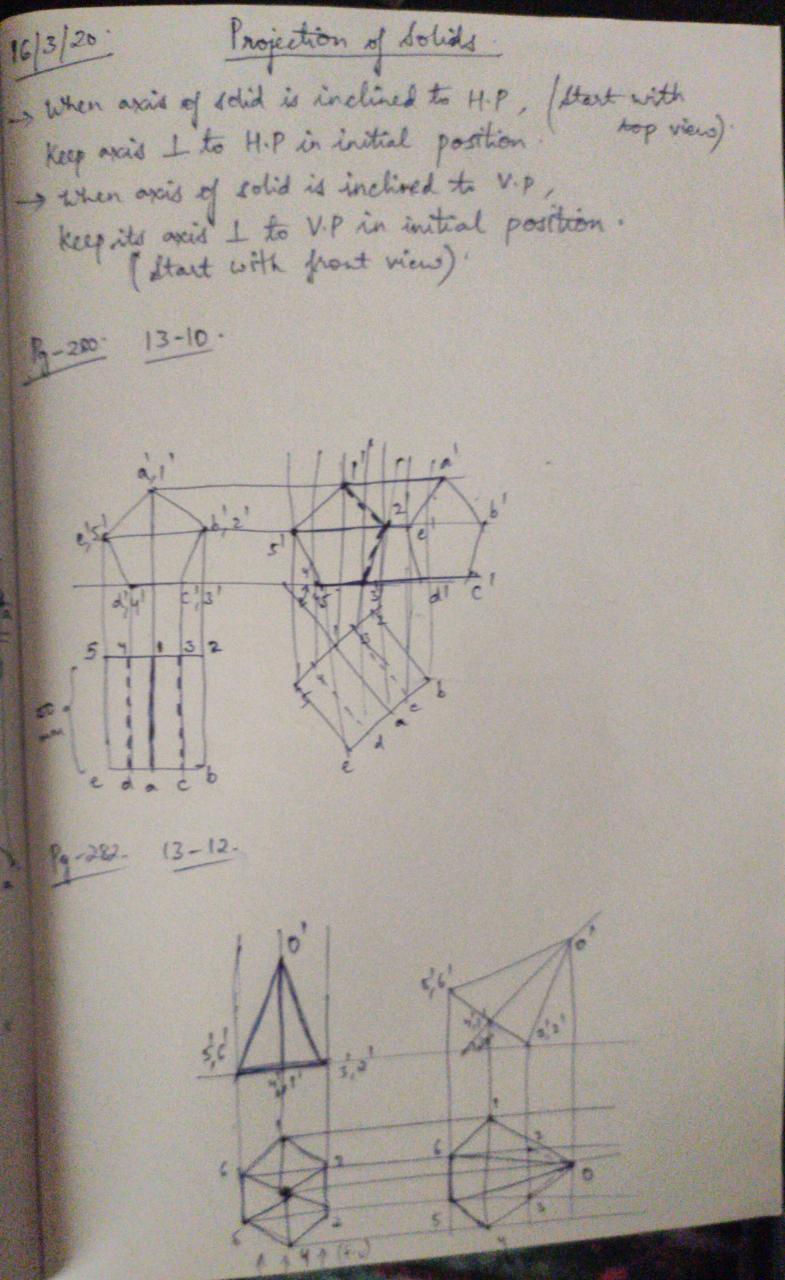 16/3/20.
Projection of Solids.
→ When axis of solid is inclined to H.P, (Start with
top view).
Keep axis ⊥ to H.P in initial position.
→ When axis of solid is inclined to V.P,
Keep its axis ⊥ to V.P in initial position.
(Start with front view).
Pg-280. 13-10.
a',1'
e',5' b',2'
d',4' c',3'
5 4 1 3 2
e d a c b
1' a'
5' 2' e' b'
3' d' c'
b
c
a
d
e
Pg-282. 13-12.
o'
5',6' 3',2'
4',1'
1
6
2
4
5',6' o'
3',2'
1
6 2
o
5 3
4